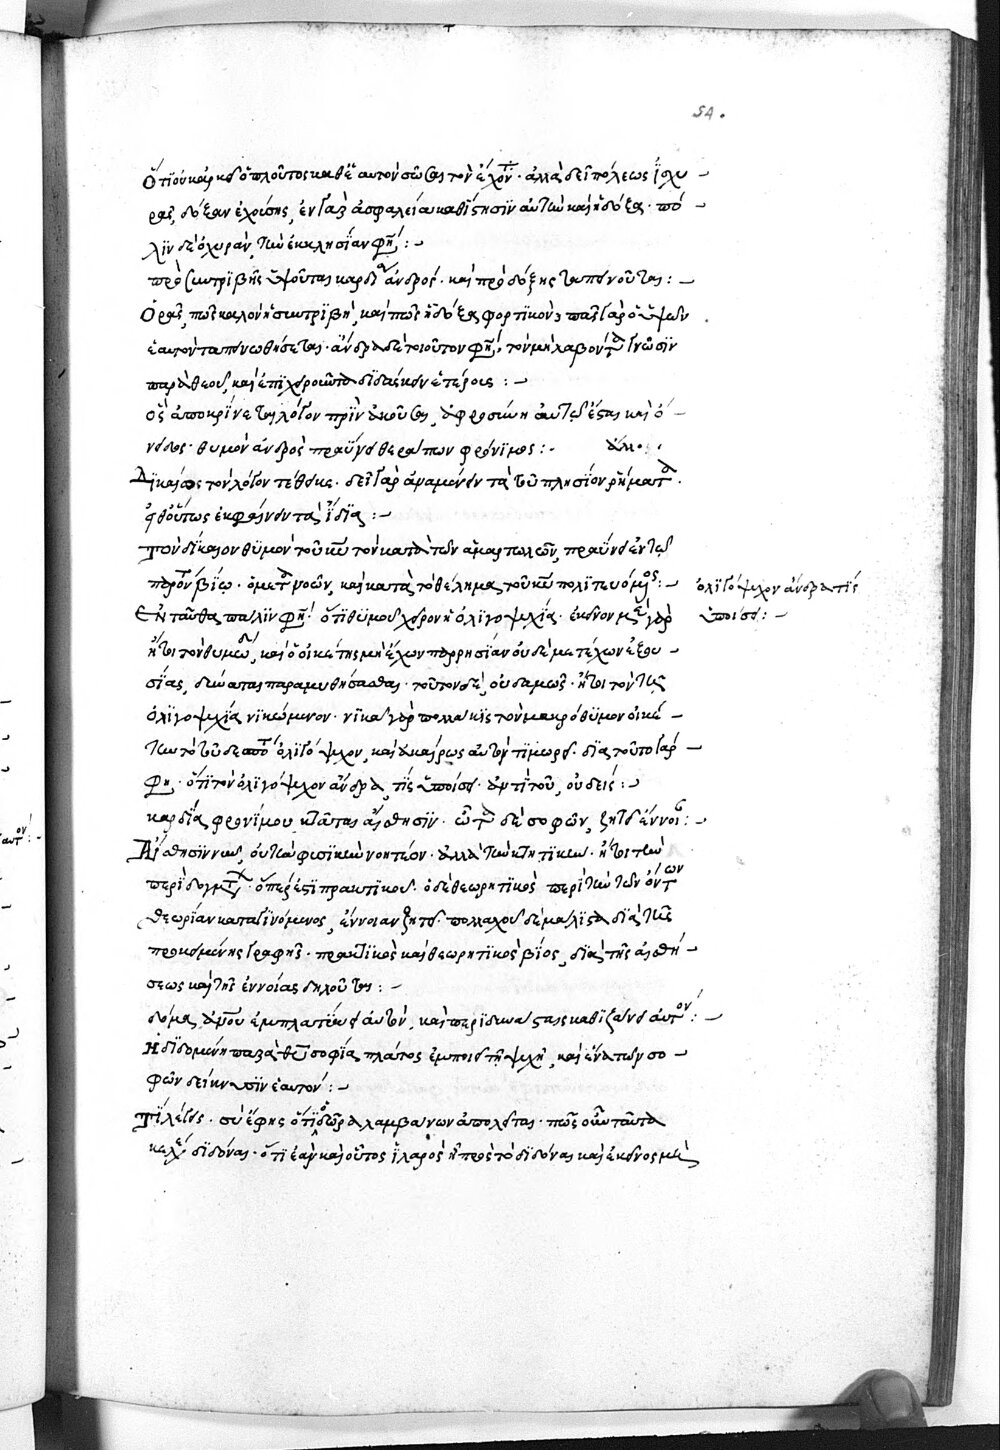 54.
Ὅτι οὐκ ἀρκεῖ ὁ πλοῦτος καθ' ἑαυτὸν σῶσαι τὸν ἔχοντα· ἀλλὰ δεῖ πόλεως ἰσχυ
ρᾶς, δόξαν ἐχούσης, ἐν γὰρ ἀσφαλεία καθίστησιν αὐτὴν καὶ ἡ δόξα· πό
λιν δὲ ὀχυρὰν, τὴν ἐκκλησίαν φησί:
πρὸ συντριβῆς ὑψοῦται καρδία ἀνδρός· καὶ πρὸ δόξης ταπεινοῦται:
Ὁρᾷς, πῶς καλὸν ἡ συντριβή, καὶ πῶς ἡ δόξα φορτικόν; πᾶς γὰρ ὁ ὑψῶν
ἑαυτὸν ταπεινωθήσεται· ἄνδρα δὲ τοιοῦτον φησί, τὸν μὴ λαβόντα γνῶσιν
παρὰ θεοῦ, καὶ ἐπιχειροῦντα διδάσκειν ἑτέρους:
Ὃς ἀποκρίνεται λόγον πρὶν ἀκοῦσαι, ἀφροσύνη αὐτῷ ἐστι καὶ ὄ
νειδος· θυμὸν ἀνδρὸς πραΰνει θεράπων φρόνιμος:
Δικαίως τὸν λόγον τέθεικε· δεῖ γὰρ ἀναμένειν τὰ τοῦ πλησίον ῥήματα·
εἶθ' οὕτως ἐκφαίνειν τὰ ἴδια:
Τὸν δίκαιον θυμὸν τοῦ κυρίου τὸν κατὰ τῶν ἁμαρτωλῶν, πραΰνει ἐν τῷ
παρόντι βίῳ· ὁ μετανοῶν, καὶ κατὰ τὸ θέλημα τοῦ κυρίου πολιτευόμενος:
ὀλιγόψυχον ἄνδρα τίς
ὑποίσει:
Ἐνταῦθα πάλιν φησί· ὅτι θυμοῦ χεῖρον ἡ ὀλιγοψυχία· ἐκεῖνον μὲν γὰρ
ἤτοι τὸν θυμὸν, καὶ ὁ οἰκέτης μὴ ἔχων παρρησίαν οὐδὲ μετέχων ἐξου
σίας, δύναται παραμυθήσασθαι· τοῦτον δὲ, οὐδαμῶς· ἤτοι τὸν τῇ
ὀλιγοψυχία νικώμενον· νικᾶ γὰρ πολλάκις τὸν μακρόθυμον οἰκέ
την τὸ τοῦ δεσπότου ὀλιγόψυχον, καὶ ἀκαίρως αὐτὸν τιμωρεῖ· διὰ τοῦτο γάρ
φησι· ὅτι τὸν ὀλιγόψυχον ἄνδρα, τίς ὑποίσει· ἀντὶ τοῦ, οὐδείς:
καρδία φρονίμου κτᾶται αἴσθησιν· ὦτα δὲ σοφῶν, ζητεῖ ἔννοιαν:
Αἴσθησιν νῦν, οὐ τὴν φυσικὴν νοητέον· ἀλλὰ τὴν κτητικήν· ἤτοι τὴν
περὶ δογμάτων· ὅπερ ἐστὶ πρακτικοῦ· ὁ δὲ θεωρητικὸς περὶ τὴν τῶν ὄντων
θεωρίαν καταγινόμενος, ἔννοιαν ζητεῖ· πολλαχοῦ δὲ μάλιστα διὰ τῆς
προκειμένης γραφῆς· πρακτικὸς καὶ θεωρητικὸς βίος, διὰ τῆς αἰσθή
σεως καὶ τῆς ἐννοίας δηλοῦται:
δόμα, ἀνθρώπου ἐμπλατύνει αὐτόν, καὶ παρὰ δυνάσταις καθιζάνει αὐτόν:
Ἡ διδομένη παρὰ θεοῦ σοφία, πλάτος ἐμποιεῖ τῇ ψυχῇ, καὶ ἕνα τῶν σο
φῶν δείκνυσιν ἑαυτόν:
Τί λέγεις· σὺ ἔφης ὅτι ὁ δῶρα λαμβάνων ἀπολεῖται· πῶς οὖν ταῦτα
κελεύει διδόναι· ὅτι ἐὰν καὶ οὗτος ἱλαρὸς ᾖ πρὸς τὸ διδόναι κἀκεῖνος μὲν